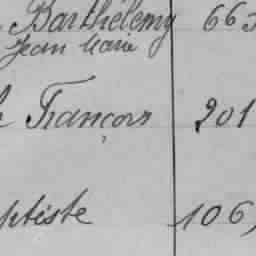 Barthélemy 663
Jean Marie
François 201
ptiste 106,